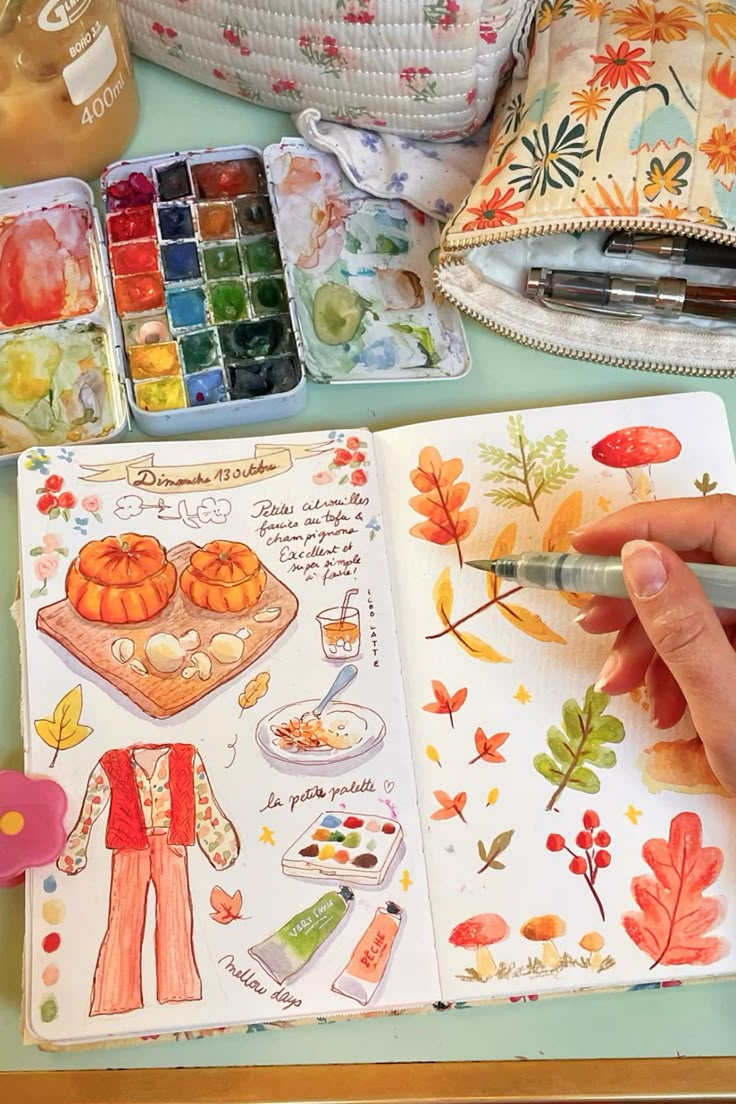 BORO 3.3
400ml
Dimanche 13 Octobre
Petites citrouilles
farcies au tofu &
champignons
Excellent et
super simple
à faire!
ICED LATTE
la petite palette
VERT OLIVE
PÊCHE
Mellow days